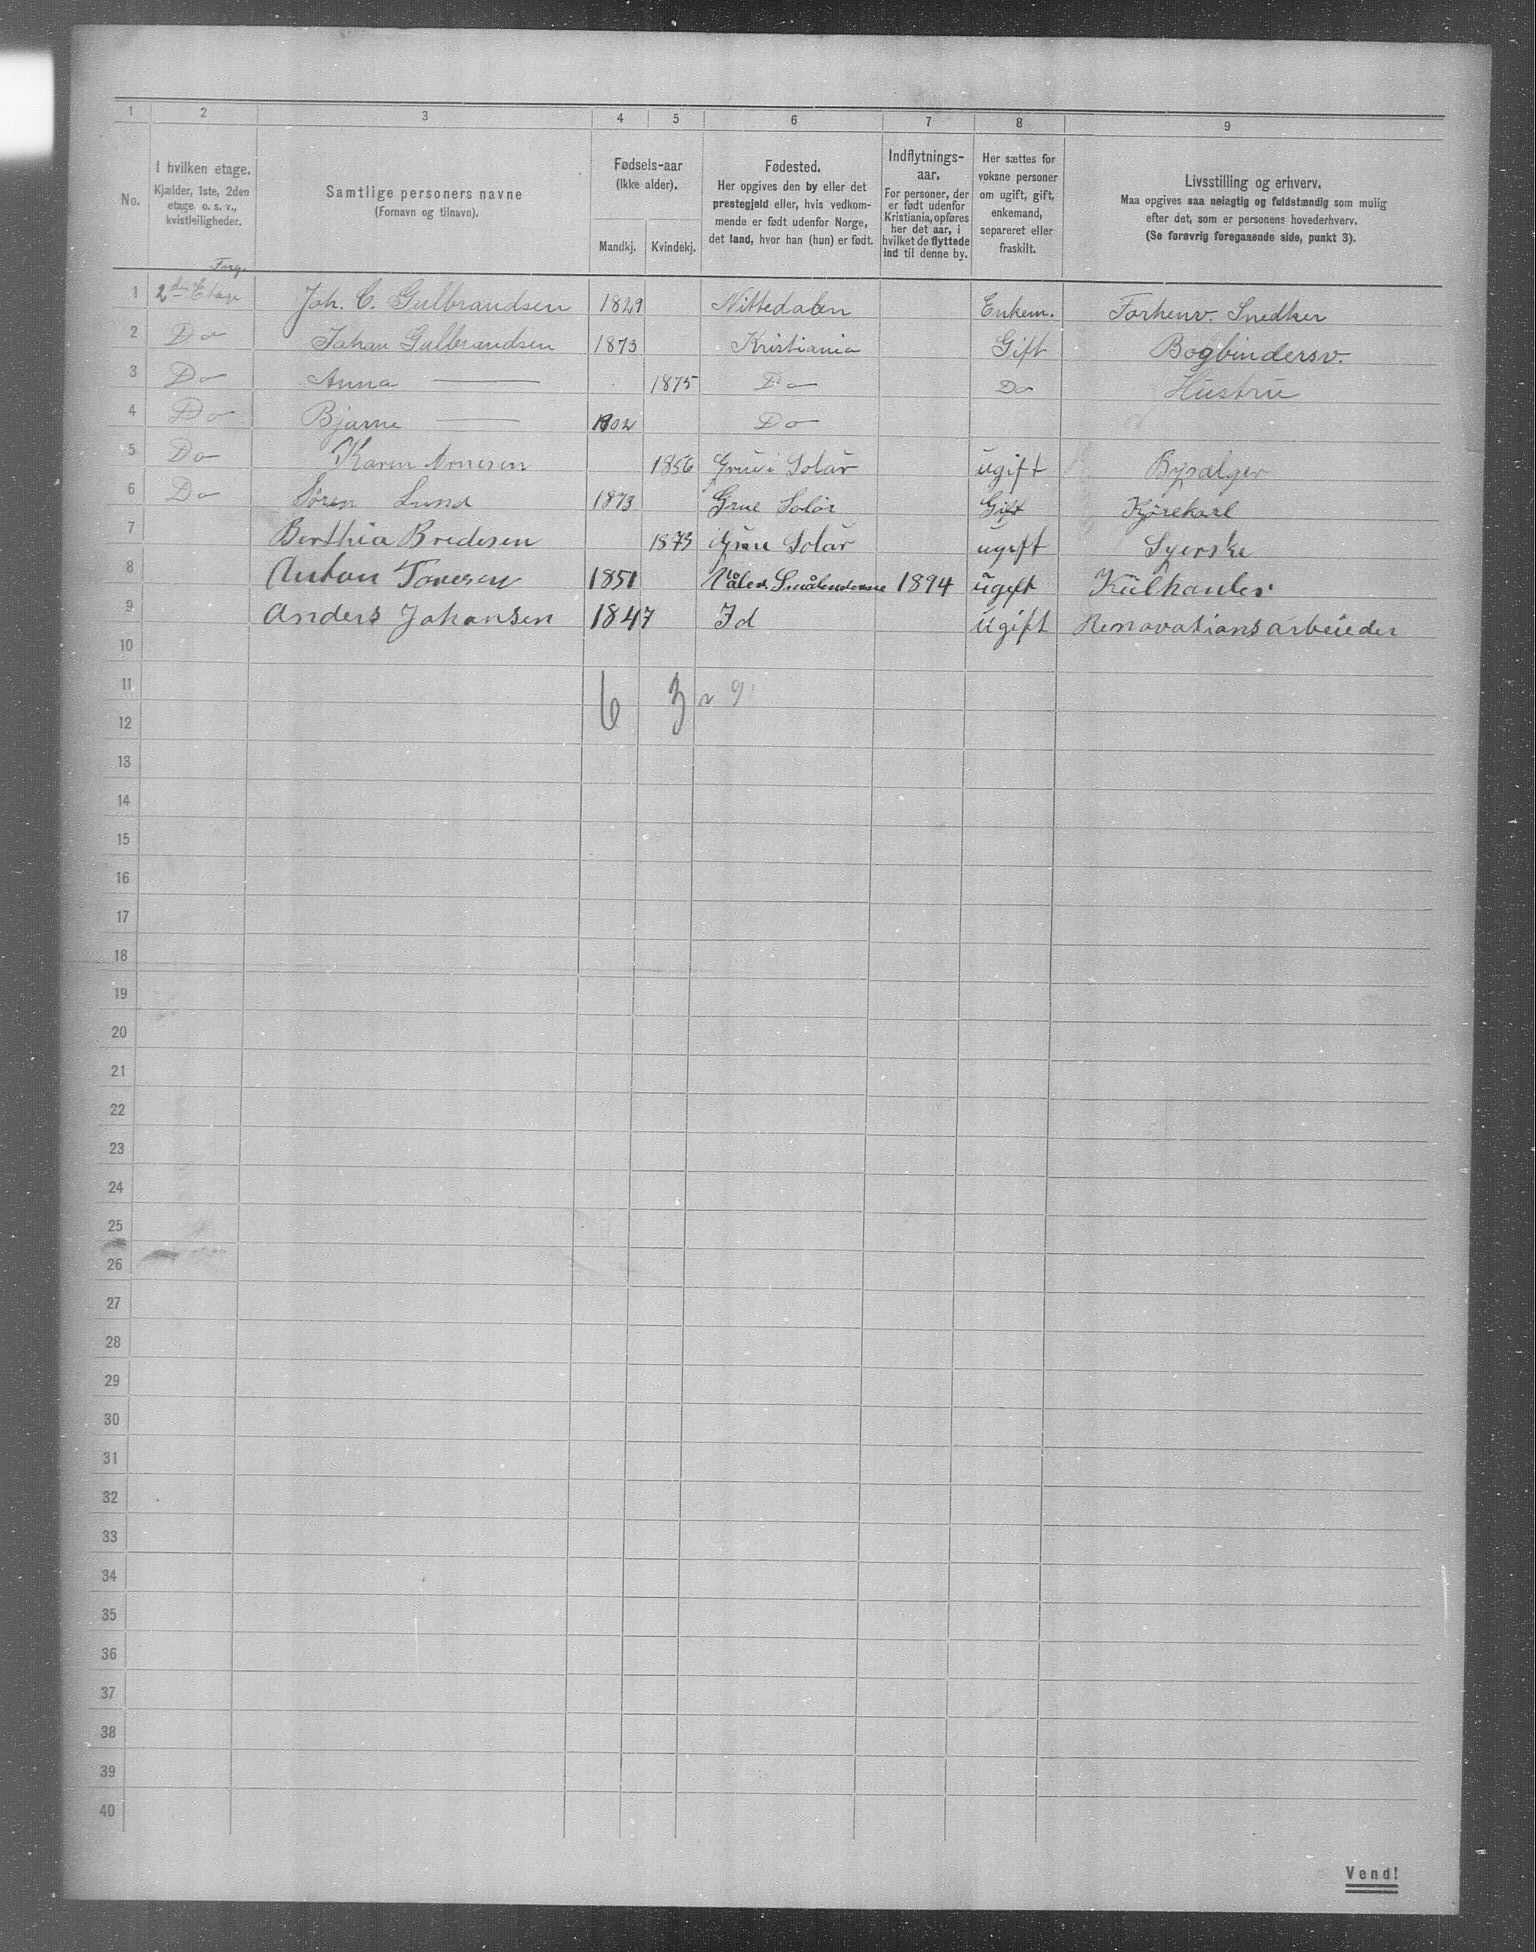 1 2 3 4 5 6 7 8 9
No.
I hvilken etage.
Kjælder, 1ste, 2den
etage o. s. v.,
kvistleiligheder.
Samtlige personers navne
(Fornavn og tilnavn).
Fødsels-aar
(Ikke alder).
Mandkj. Kvindekj.
Fødested.
Her opgives den by eller det
prestegjeld eller, hvis vedkom-
mende er født udenfor Norge,
det land, hvor han (hun) er født.
Indflytnings-
aar.
For personer, der
er født udenfor
Kristiania, opføres
her det aar, i
hvilket de flyttede
ind til denne by.
Her sættes for
voksne personer
om ugift, gift,
enkemand,
separeret eller
fraskilt.
Livsstilling og erhverv.
Maa opgives saa nøiagtig og fuldstændig som mulig
efter det, som er personens hovederhverv.
(Se forøvrig foregaaende side, punkt 3).
Forg.
1 2den Etage Joh. C. Gulbrandsen 1829 Nittedalen Enkem. Forhenv. Snedker
2 Do Johan Gulbrandsen 1873 Kristiania Gift Bogbindersv.
3 Do Anna — 1875 Do Do Hustru
4 Do Bjarne — 1902 Do
5 Do Karen Arnesen 1856 Grue i Solør ugift Bysælger
6 Do Søren Lund 1873 Grue Solør Gift Kjørekarl
7 Berthia Bredesen 1873 Grue Solør ugift Syerske
8 Anton 1851 Smålendenene 1894 ugift
9 Anders Johansen 1847 Id ugift Renovationsarbeieder
10
11
6 3 9
12
13
14
15
16
17
18
19
20
21
22
23
24
25
26
27
28
29
30
31
32
33
34
35
36
37
38
39
40
Vend!